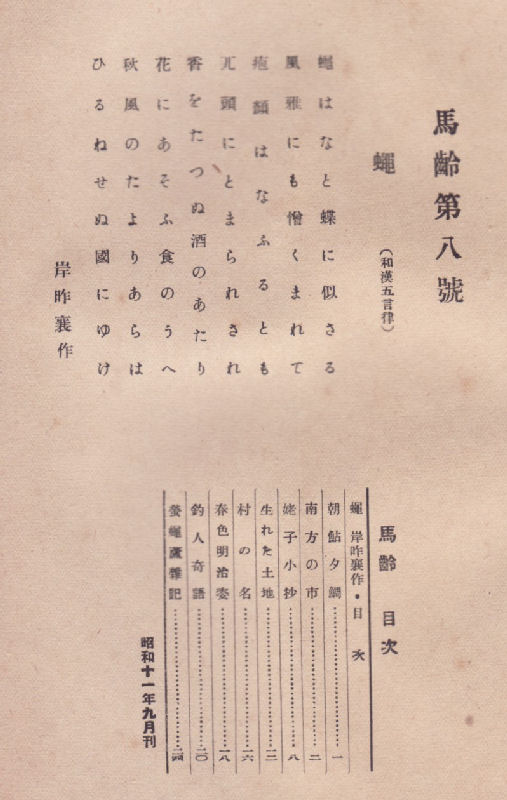 馬齡第八號
蠅
（和漢五言律）
蠅はなと蝶に似さる
風雅にも憎くまれて
疱顏はなふるとも
兀頭にとまられされ
香をたつぬ酒のあたり
花にあそふ食のうへ
秋風のたよりあらは
ひるねせぬ國にゆけ
岸昨襄作
馬齡 目次
蠅 岸昨襄作・目次
朝鮎夕鯛…………一
南方の市…………二
姥子小抄…………八
生れた土地…………一二
村の名…………一六
春色明治姿…………一八
釣人奇語…………二〇
螢蠅廬雜記…………二四
昭和十一年九月刊